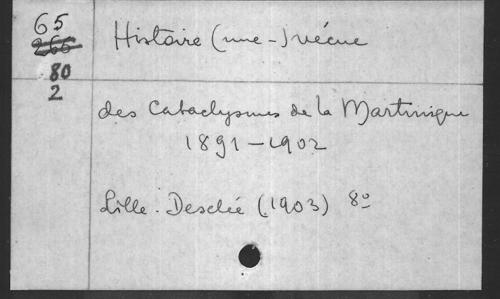 65
Histoire (une-) vécue
266
80
2
des Cataclysmes de la Martinique
1891-1902
Lille. Desclée (1903) 8º